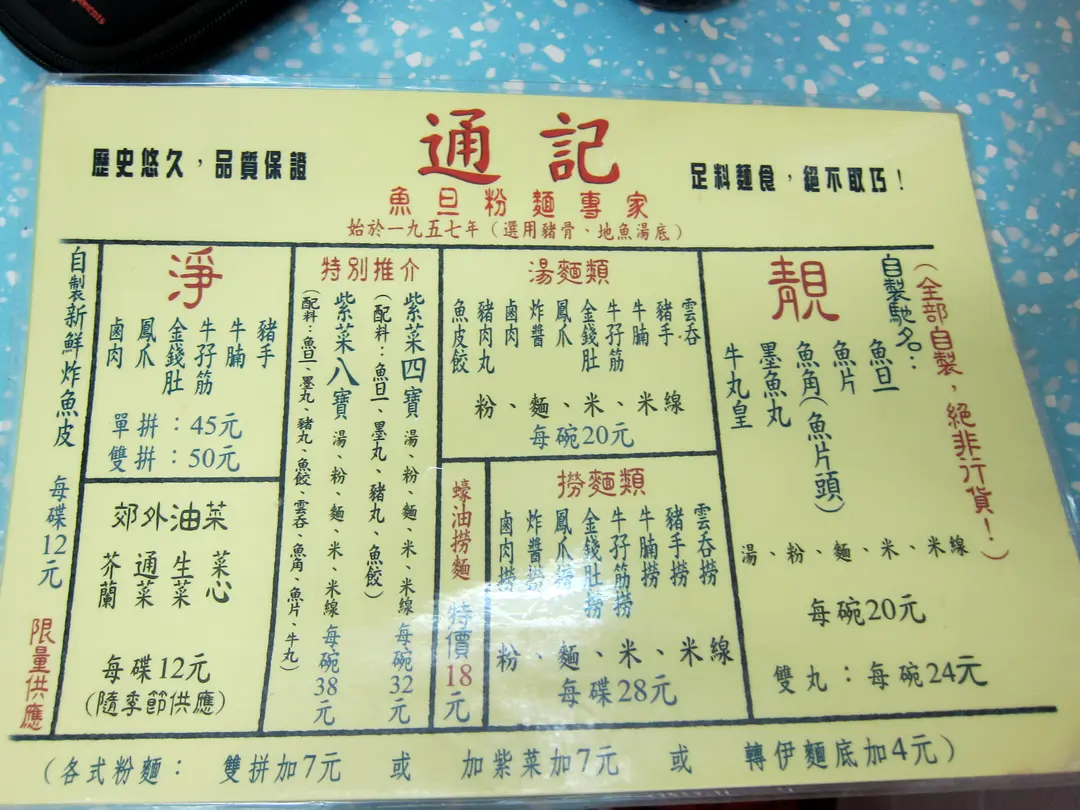 歷史悠久，品質保證
通記
足料麵食，絕不取巧！
魚旦粉麵專家
始於一九五七年（選用豬骨、地魚湯底）
（全部自製，絕非行貨！）
靚
自製馳名：
魚旦
魚片
魚角（魚片頭）
墨魚丸
牛丸皇
湯、粉、麵、米、米線
每碗20元
雙丸：每碗24元
湯麵類
雲吞
豬手
牛腩
牛孖筋
金錢肚
鳳爪
炸醬
鹵肉
豬肉丸
魚皮餃
粉、麵、米、米線
每碗20元
撈麵類
雲吞撈
豬手撈
牛腩撈
牛孖筋撈
金錢肚撈
鳳爪撈
炸醬撈
鹵肉撈
粉、麵、米、米線
每碟28元
蠔油撈麵 特價18元
特別推介
紫菜四寶 湯、粉、麵、米、米線 每碗32元
（配料：魚旦、墨丸、豬丸、魚餃）
紫菜八寶 湯、粉、麵、米、米線 每碗38元
（配料：魚旦、墨丸、豬丸、魚餃、雲吞、魚角、魚片、牛丸）
淨
豬手
牛腩
牛孖筋
金錢肚
鳳爪
鹵肉
單拼：45元
雙拼：50元
郊外油菜
菜心
生菜
通菜
芥蘭
每碟12元
（隨季節供應）
自製新鮮炸魚皮 每碟12元 限量供應
（各式粉麵： 雙拼加7元 或 加紫菜加7元 或 轉伊麵底加4元）